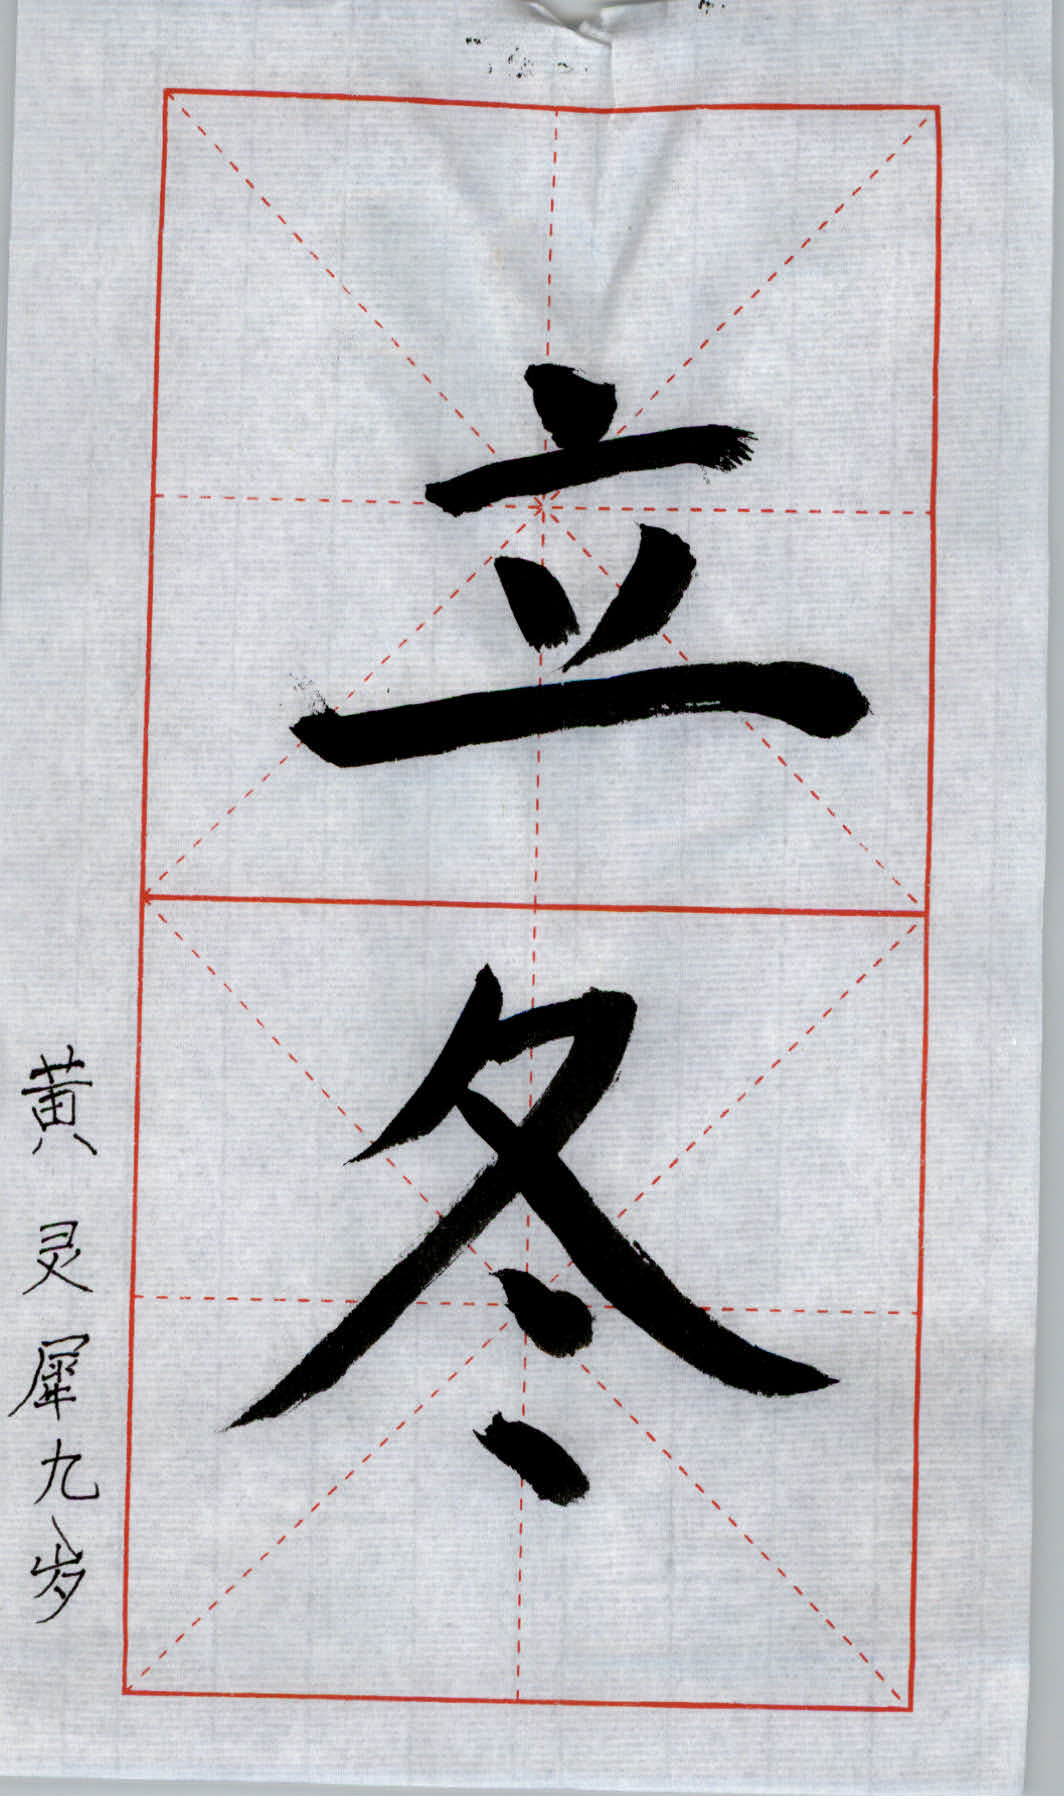 立冬
黄灵犀九岁